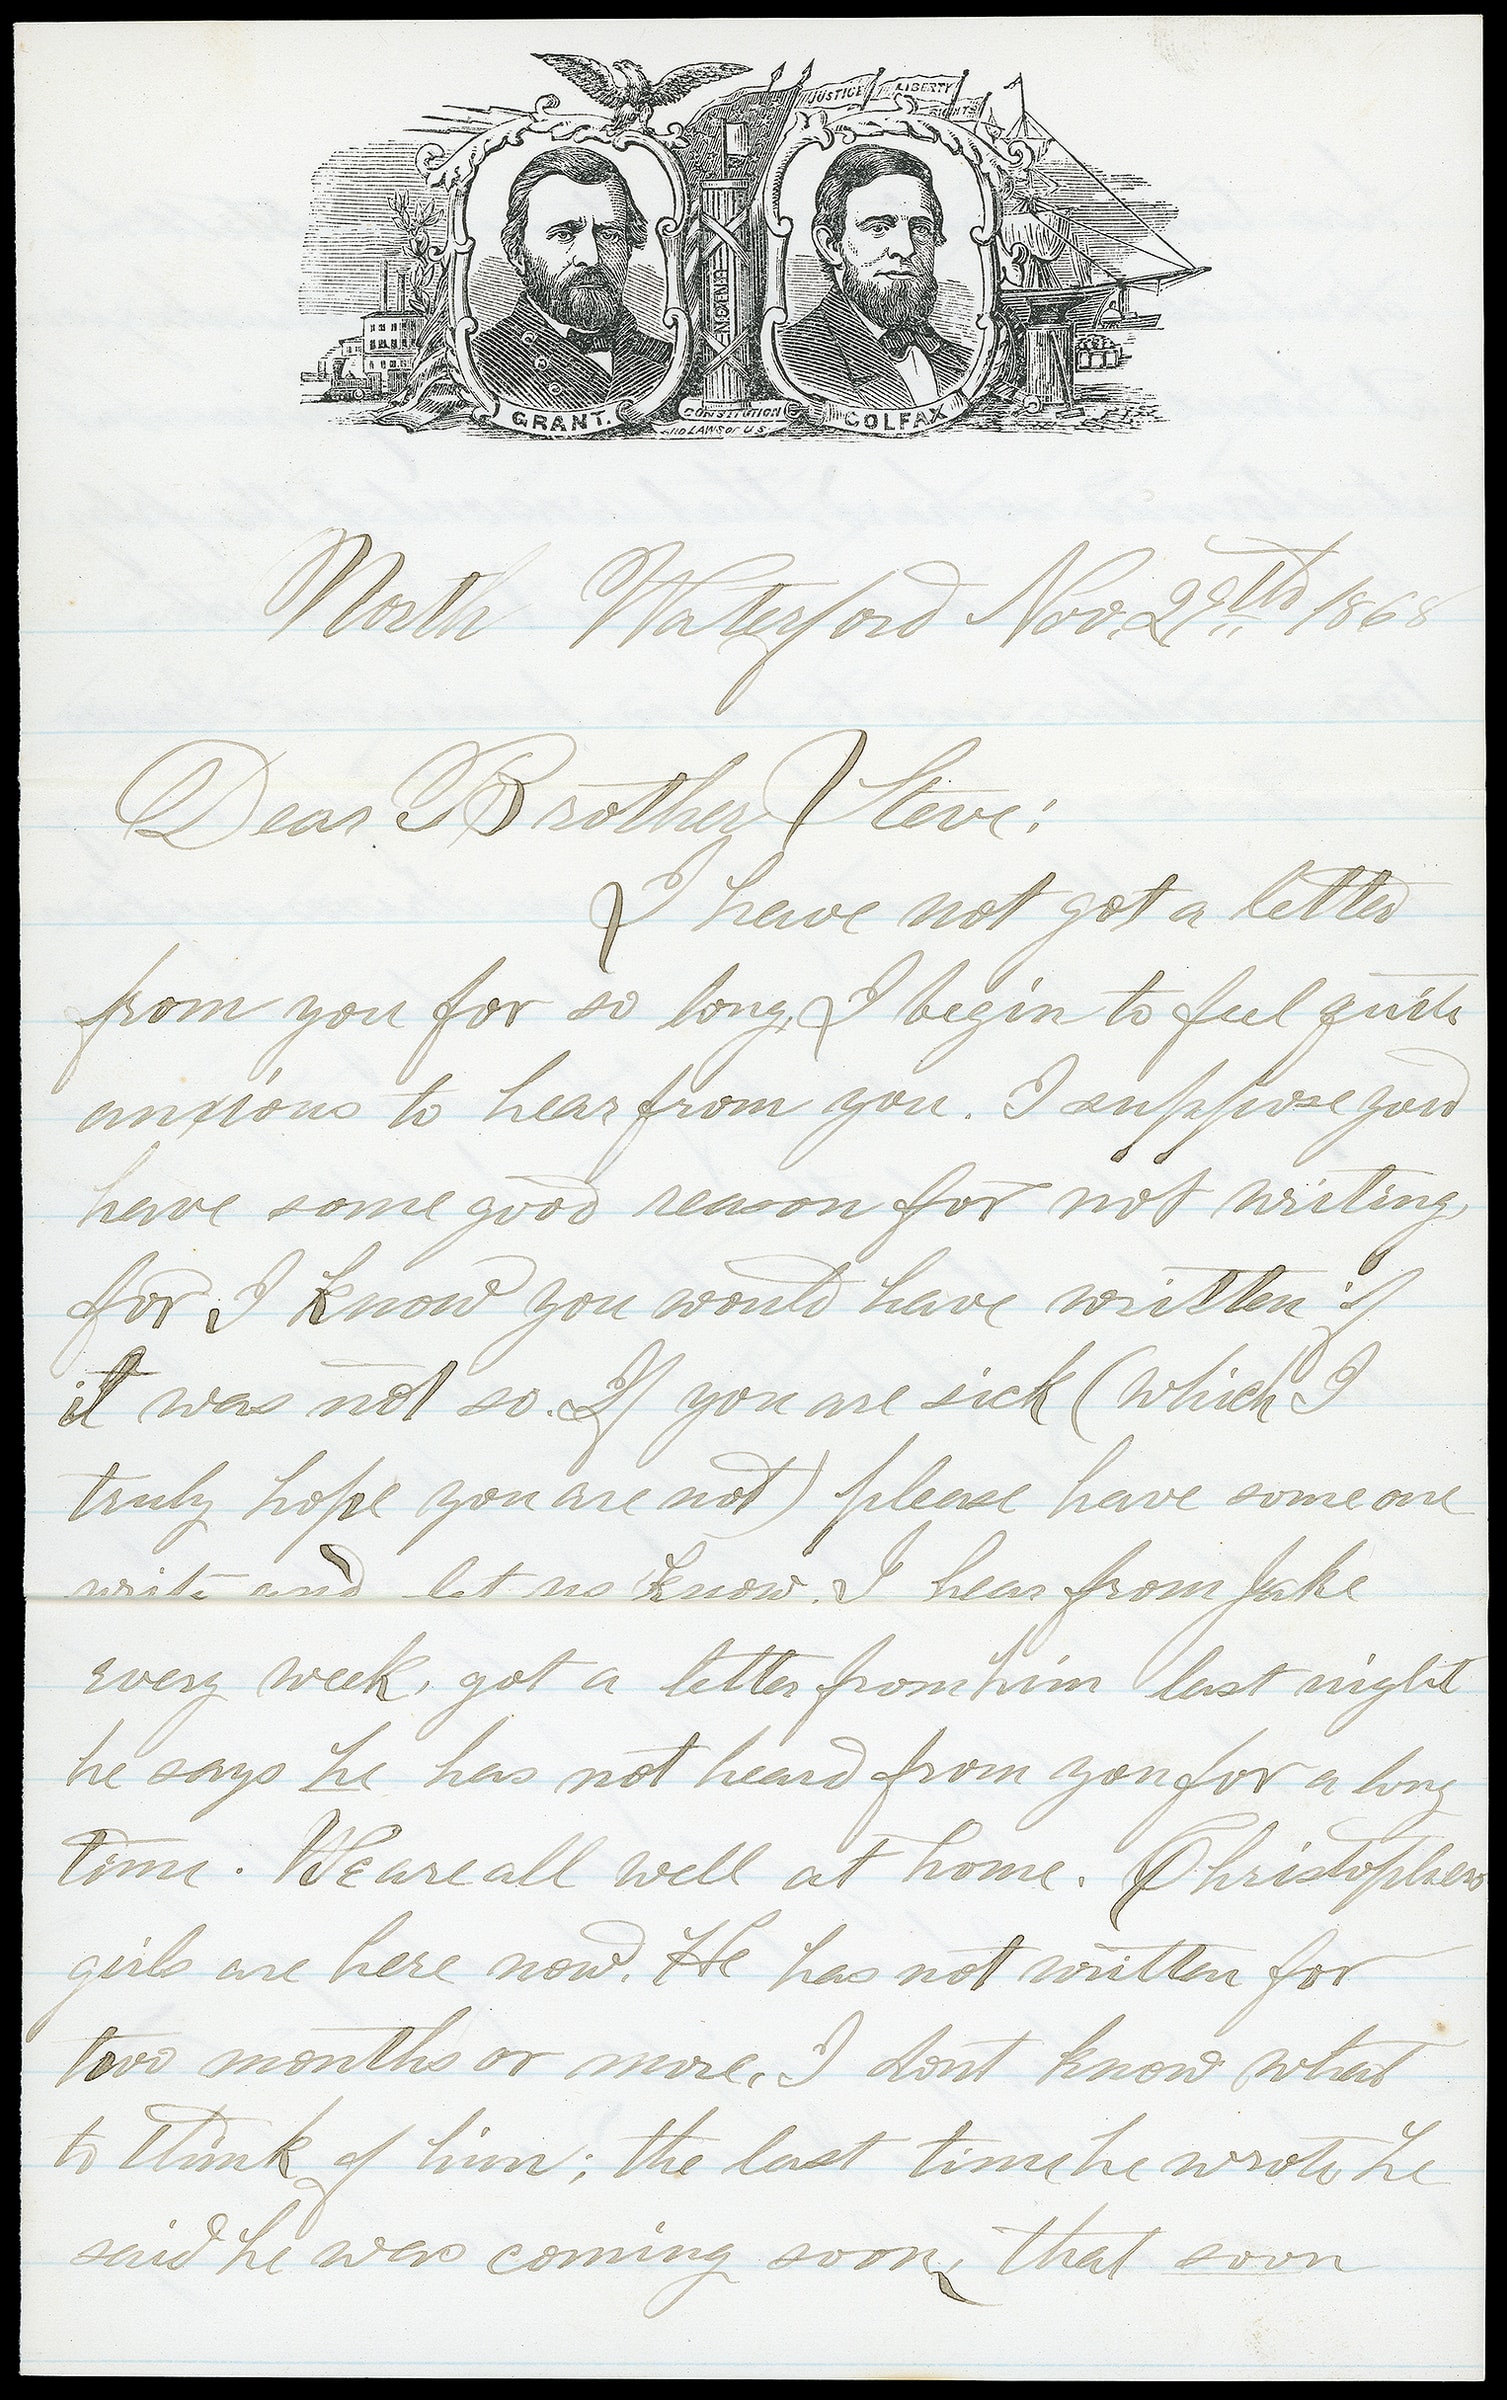 JUSTICE LIBERTY
RIGHTS
UNION
GRANT. CONSTITUTION COLFAX
AND LAWS OF U.S.
North Waterford Nov. 29th 1868
Dear Brother Steve:
I have not got a letter
from you for so long, I begin to feel quite
anxious to hear from you. I suppose you
have some good reason for not writing,
for I know you would have written if
it was not so. If you are sick (which I
truly hope you are not) please have some one
write and let us know. I hear from Jake
every week, got a letter from him last night
he says he has not heard from you for a long
time. We are all well at home. Christophers
girls are here now. He has not written for
two months or more, I dont know what
to think of him; the last time he wrote he
said he was coming soon, that soon